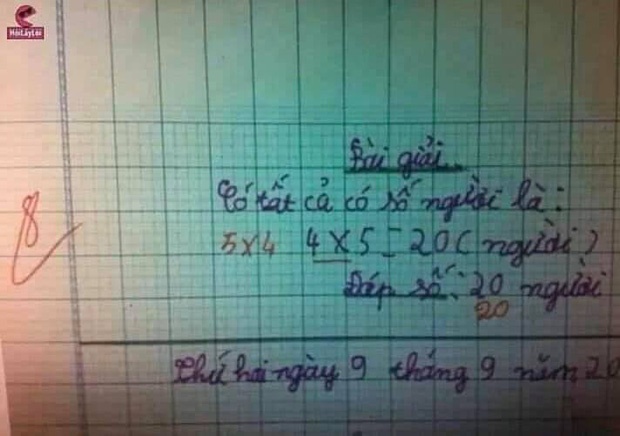 HóiLầyLội
Bài giải
Có tất cả có số người là:
8 5x4 4 x 5 = 20 ( người )
Đáp số: 20 người
20
Thứ hai ngày 9 tháng 9 năm 20